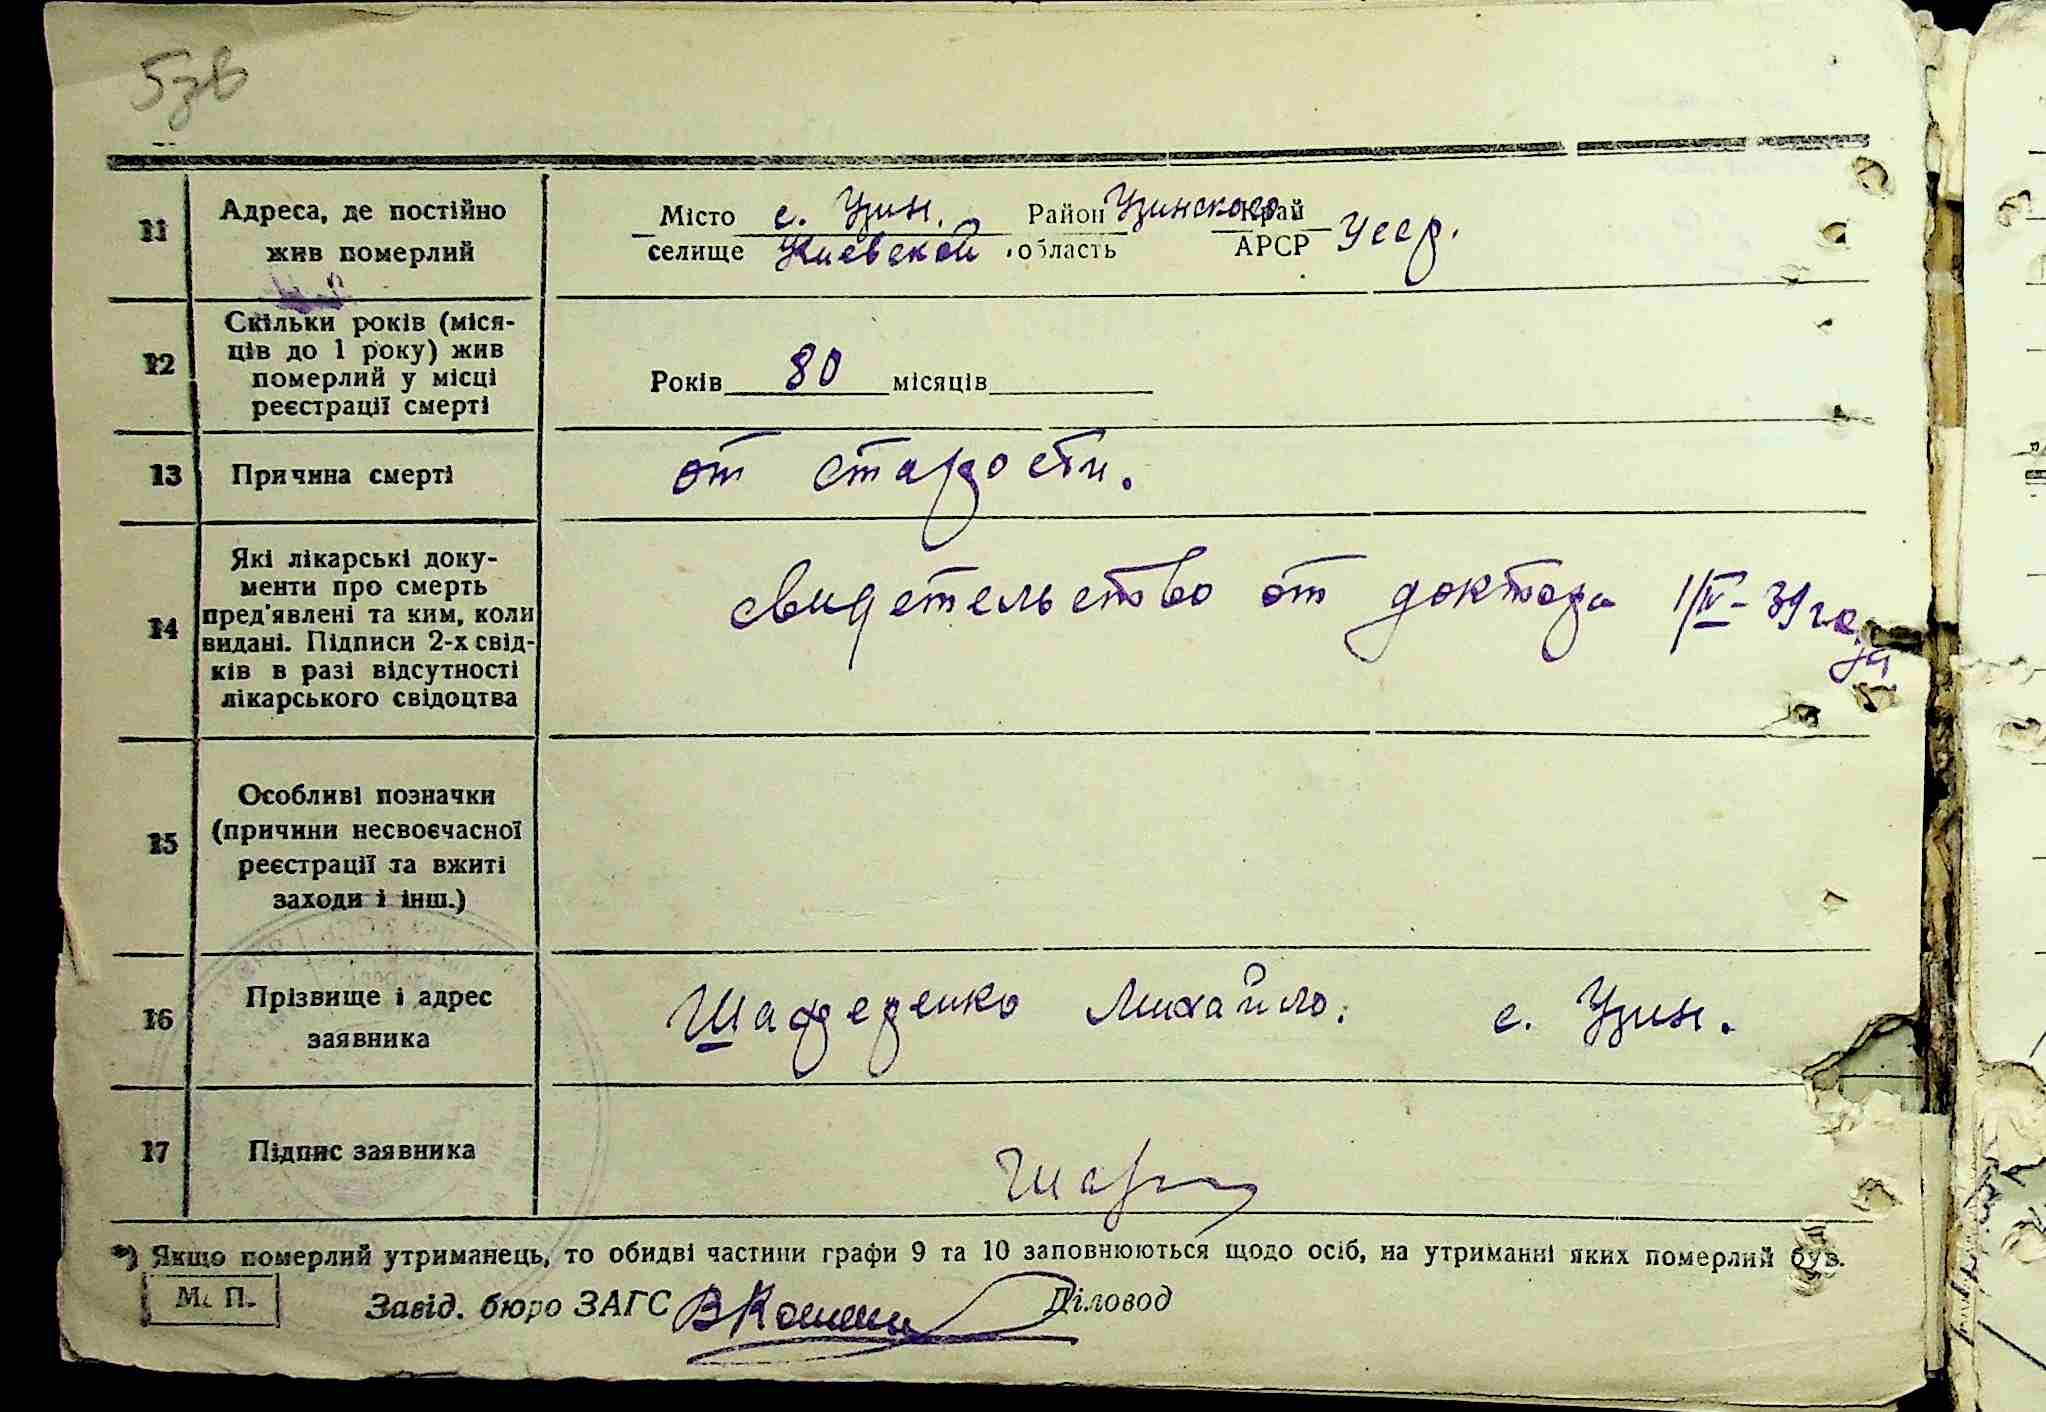 5зв
11 Адреса, де постійно жив померлий
Місто с. Узин. Район Узинского Край
селище Киевской область АРСР Усср.
12 Скільки років (міся-
ців до 1 року) жив
померлий у місці
реєстрації смерті
Років 80 місяців
13 Причина смерті
от старости.
14 Які лікарські доку-
менти про смерть
пред'явлені та ким, коли
видані. Підписи 2-х свід-
ків в разі відсутності
лікарського свідоцтва
свидетельство от доктора 1/IV-39 го
да
15 Особливі позначки
(причини несвоєчасної
реєстрації та вжиті
заходи і інш.)
16 Прізвище і адрес
заявника
Михайло. с. Узин.
17 Підпис заявника
*) Якщо померлий утриманець, то обидві частини графи 9 та 10 заповнюються щодо осіб, на утриманні яких померлий був.
М. П.
Завід. бюро ЗАГС Діловод